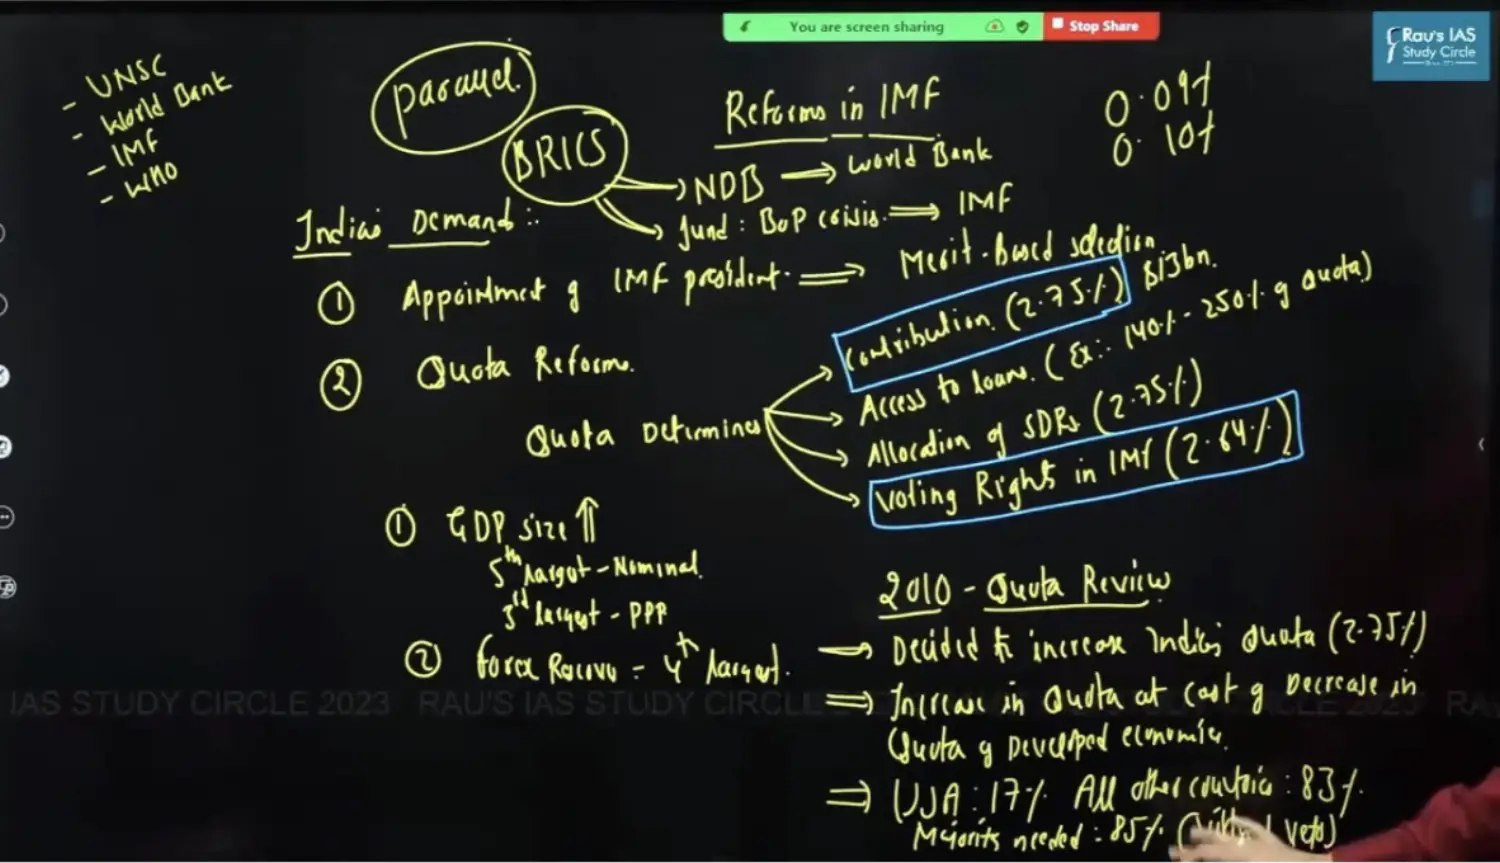 You are screen sharing
Stop Share
Rau's IAS
Study Circle
- UNSC
- World Bank
- IMF
- WHO
parallel.
BRICS
Reforms in IMF
0.09%
0.10%
NDB → World Bank
fund : BoP crisis. ⇒ IMF
India's Demand :.
① Appointment of IMF president. ⇒ Merit-Based selection.
② Quota Reforms.
Quota Determines
Contribution. (2.75%) $13bn.
Access to loans. (Ex:- 140% - 250% of quota)
Allocation of SDRs (2.75%)
Voting Rights in IMF (2.64%)
① GDP size ⇑
5th largest - Nominal.
3rd largest - PPP
② Forex Reserve = 4th largest.
2010 - Quota Review
→ Decided to increase India's Quota (2.75%)
⇒ Increase in Quota at cost of Decrease in
Quota of Developed economies.
⇒ USA : 17% All other countries : 83%.
Majority needed : 85% ( Veto)
IAS STUDY CIRCLE 2023 RAU'S IAS STUDY CIRCLE 2023 RA